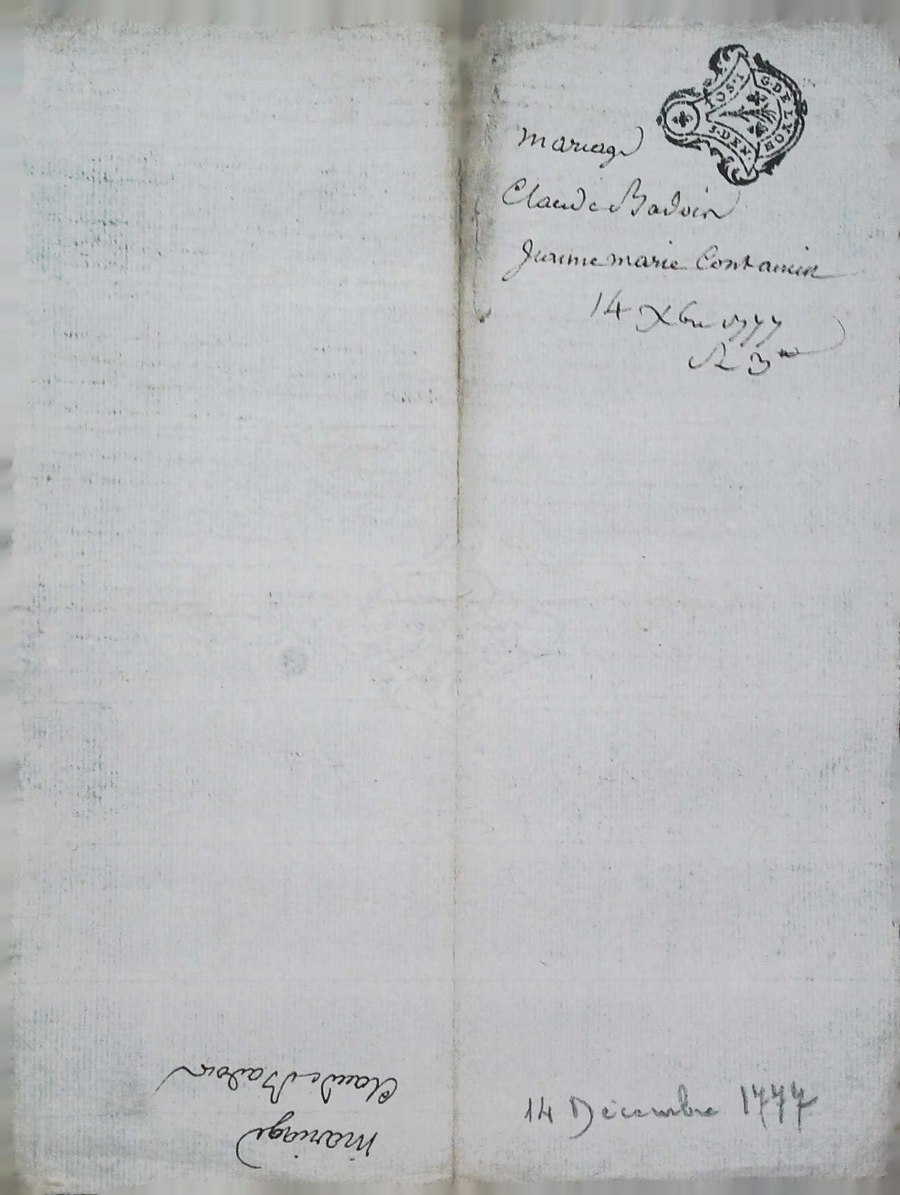 G. DE LYON
mariage
Claude Badoin
Jeanne marie Contamin
14 Xbre 1777
14 Décembre 1777
mariage
Claude Badoin